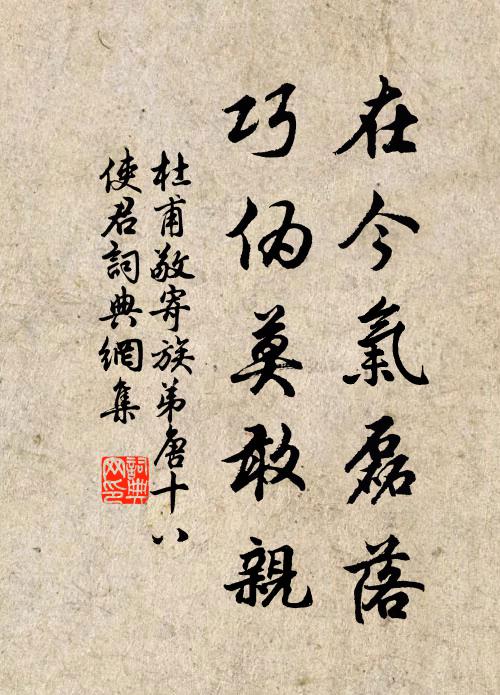 在今氣磊落
巧偽莫敢親
杜甫敬寄族弟唐十八
使君詞典網集
詞典
网印